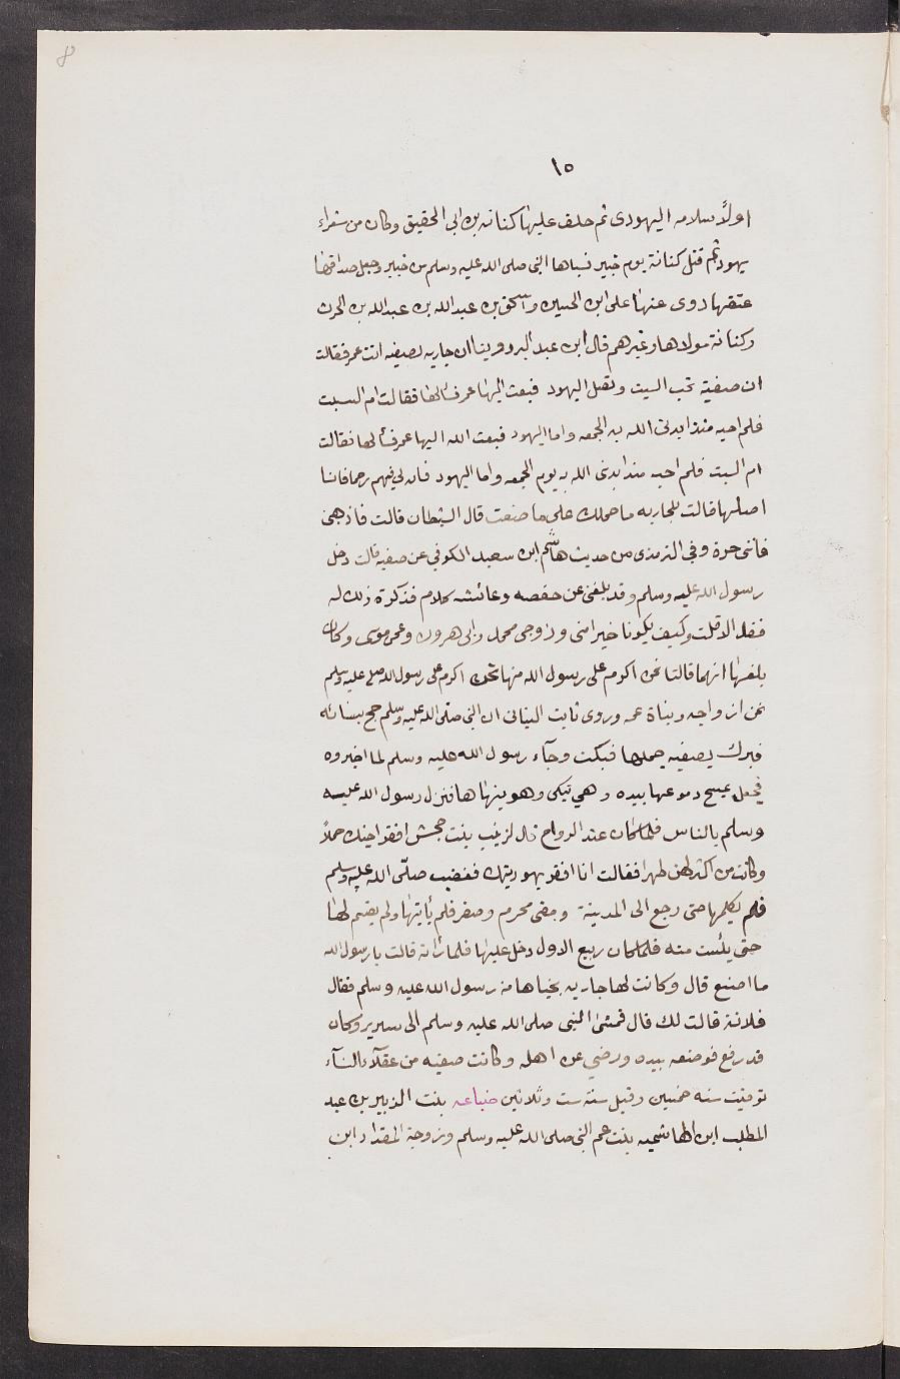 8
١٥
اولاً سلامه اليهودى ثم خلف عليها كنانه بن ابى الحقيق وكان من شعراء
يهود ثم قتل كنانة يوم خيبر فسباها النبى صلى الله عليه وسلم من خيبر وجعل صداقها
عتقها روى عنها على ابن الحسين واسحق بن عبد الله بن عبد الله بن الحرث
وكنانة مولاها وغيرهم قال ابن عبد البر وروينا ان جاريه لصفيه اتت عمر فقالت
ان صفية تحب السبت وتصل اليهود فبعث اليها عمر فسألها فقالت ام السبت
فلم احبه منذ ابدلنى الله به الجمعه واما اليهود فبعث الله اليها عمر فسألها فقالت
ام السبت فلم احبه منذ ابدلنى الله به يوم الجمعه واما اليهود فان لى فيهم رحما فانا
اصلها قالت للجاريه ما حملك على ما صنعت قال الشيطان قالت فاذهبى
فانتى حرة وفى الترمذى من حديث هاشم ابن سعيد الكوفي عن صفيه قالت دخل
رسول الله عليه وسلم وقد بلغنى عن حفصه وعائشه كلام فذكرة ذلك له
فقال الا قلت وكيف يكونا خيرا منى وزوجى محمد وابى هرون وعمى موسى وكان
بلغها انهما قالتا نحن اكرم على رسول الله منها نحن اكرم على رسول الله صلى عليه وسلم
نحن ازواجه وبناة عمه وروى ثابت البنانى ان النبى صلى الله عليه وسلم حج بنسائه
فبرك بصفيه جملها فبكت وجاء رسول الله عليه وسلم لما اخبروه
فجعل يمسح دموعها بيده وهى تبكى وهو ينهاها فنزل رسول الله عليه
وسلم بالناس فلما كان عند الرواح قال لزينب بنت جحش افقرا اختك جملاً
وكانت من اكثرهن ظهرا فقالت انا افقر يهوديتك فغضب صلّى الله عليه وسلم
فلم يكلمها حتى رجع الى المدينة ومضى محرم وصفر فلم يأتيها ولم يقسم لها
حتى يئست منه فلما كان ربيع الاول دخل عليها فلما رأته قالت يا رسول الله
ما اصنع قال وكانت لها جاريه تخباها من رسول الله عليه وسلم فقال
فلانة قالت لك قال فمشى النبى صلى الله عليه وسلم الى سرير وكان
قد رفع فوضعه بيده ورضي عن اهله وكانت صفيه من عقلآء النسآء
توفيت سنه خمسين وقيل سنة ست وثلاثين ضباعه بنت الزبير بن عبد
المطلب ابن الهاشميه بنت عم النبى صلى الله عليه وسلم وزوجة المقداد ابن